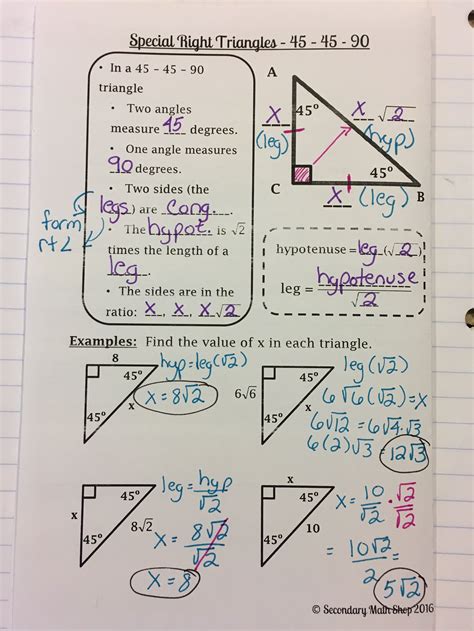 Special Right Triangles - 45 - 45 - 90
• In a 45 – 45 – 90
triangle
• Two angles
measure 45 degrees.
• One angle measures
90 degrees.
• Two sides (the
legs) are cong.
• The hypot. is √2
times the length of a
leg.
• The sides are in the
ratio: x, x, x√2
form
rt∠
A
x
(leg)
45°
x √2
(hyp)
45°
C
x (leg)
B
hypotenuse = leg (√2)
leg = hypotenuse
√2
Examples: Find the value of x in each triangle.
8
45°
45°
x
hyp=leg(√2)
x = 8√2
6√6
45°
45°
x
leg(√2)
6√6(√2)=x
6√12 = 6√4·√3
6(2)√3 = 12√3
x
45°
45°
8√2
leg = hyp
√2
x = 8√2
√2
x = 8
x
45°
45°
10
x = 10 · √2
√2 √2
= 10√2
2
5√2
© Secondary Math Shop 2016